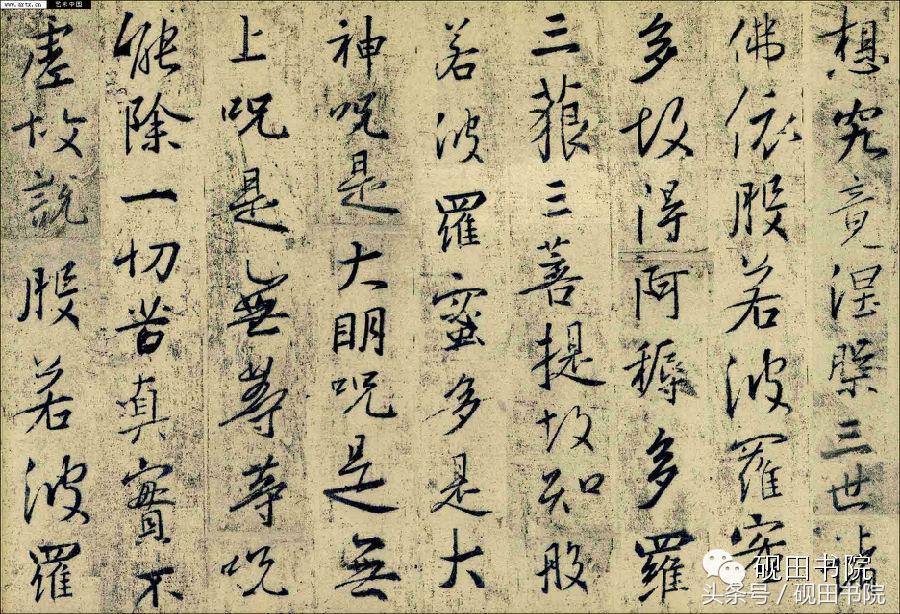 想究竟涅槃三世諸
佛依般若波羅蜜
多故得阿耨多羅
三藐三菩提故知般
若波羅蜜多是大
神呪是大明呪是無
上呪是無等等呪
能除一切苦真實不
虛故說般若波羅
www.artx.cn 艺术中国
砚田书院
头条号 / 砚田书院